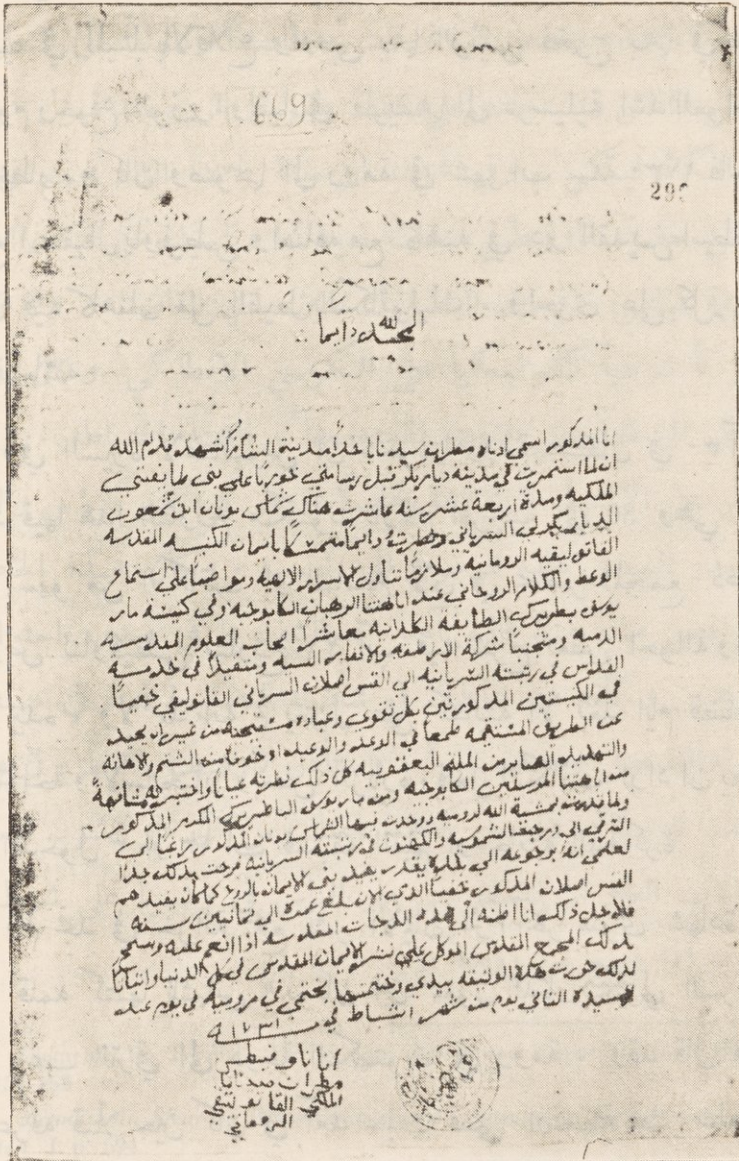 669
299
المجد لله دايمًا
انا المذكور اسمي ادناه مطران صيدنايا خذا مدينة الشام اشهد قدام الله
ان لما استمريت في مدينة دياربكر قبل رسامتي خوريًا على بني طايفتي
الملكيه ومدة اربعة عشر سنه عاشرت هناك شماس يونان ابن شمعون
الدياربكرلي السرياني ونظرته دايمًا متمسكًا بايمان الكنيسه المقدسه
القاتوليقيه الرومانيه وملازمًا تناول الاسرار الالهيه ومواضبًا على استماع
الوعظ والكلام الروحاني عند اباهتنا الرهبان الكابوجيه وفي كنيسة مار
يوسف بطريرك الطايفة الكلدانيه معاشرًا اصحاب العلوم المقدسه
الذمه ومتجنبًا شركة الاراطقه والانفاس السيه ومتقيدًا في خدمة
القداس في رتبته السريانيه الى القس اصلان السرياني القاتوليقي خفيًا
في الكنيستين المذكورتين بكل تقوى وعباده مستقيمه من غير ان يحيد
عن الطريق المستقيمه طمعًا في الوعد والوعيد او خوفًا من الشتم والاهانه
والتهديد الصاير من الملة اليعقوبيه كل ذلك نظرته عيانًا واختبرته مشافهةً
من اباهتنا المرسلين الكابوجيه ومن مار يوسف البطريرك المكرم المذكور
ولما قدمت بمشية الله لروميه ووجدت فيها الشماس يونان المذكور راغبًا الى
الترقي الى درجة الشموسيه والكهنوت في رتبته السريانيه فرحت بذلك جدًا
لعلمي انهُ برجوعه الى بلاده يقدر يفيد بني الايمان بالروح كما كان يفيدهم
القس اصلان المذكور خفيًا الذي الان بلغ عمره الى ثمانين سنه
فلاجل ذلك انا اظنه الى هذه الدرجات المقدسه اذا انعم عليه وسمح
بذلك المجمع المقدس الموكل على نشر الايمان المقدس في كل الدنيا واثباتًا
لذلك حررت هذه الوثيقه بيدي وختمتها بختمي في روميه في يوم عيد
السيدة الثاني يوم من شهر اشباط في سنة ١٧٣١
انا ناوفيطس
مطران صيدنايا
الملكي القاتوليقي
الروماني